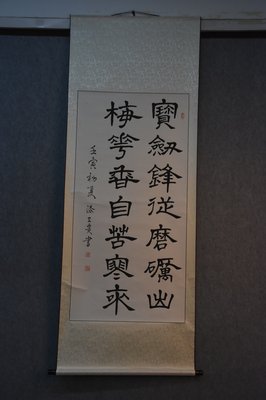 寶劍鋒從磨礪出
梅花香自苦寒來
壬寅初夏